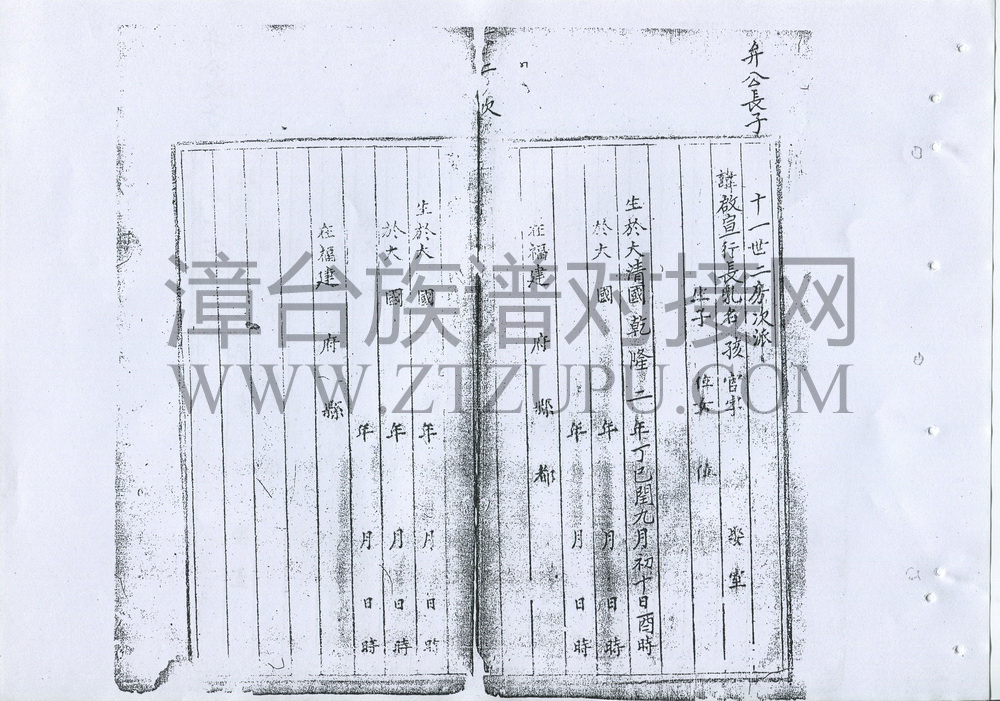 弁公長子
十一世二房次派
諱啟宣行長乳名孩官字 娶室
生子 位女 位
生於大清國乾隆二年丁巳閏九月初十日酉時
於大 國 年 月 日 時
年 月 日 時
在福建 府 縣 都
二
次
生於大 國 年 月 日 時
於大 國 年 月 日 時
年 月 日 時
在福建 府 縣
漳台族谱对接网
WWW.ZTZUPU.COM